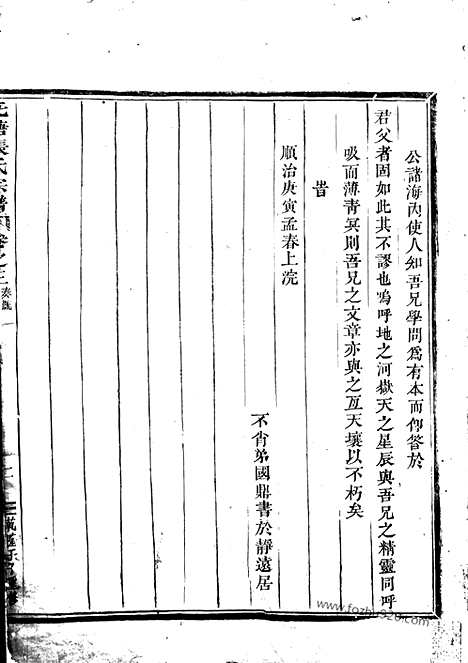 公諸海內使人知吾兄學問爲有本而仰答於
君父者固如此其不謬也嗚呼地之河嶽天之星辰與吾兄之精靈同呼
吸而薄靑冥則吾兄之文章亦與之亙天壤以不朽矣
旹
順治庚寅孟春上浣
不肖弟國鼎書於靜遠居
張氏宗譜
www.fozhu920.com